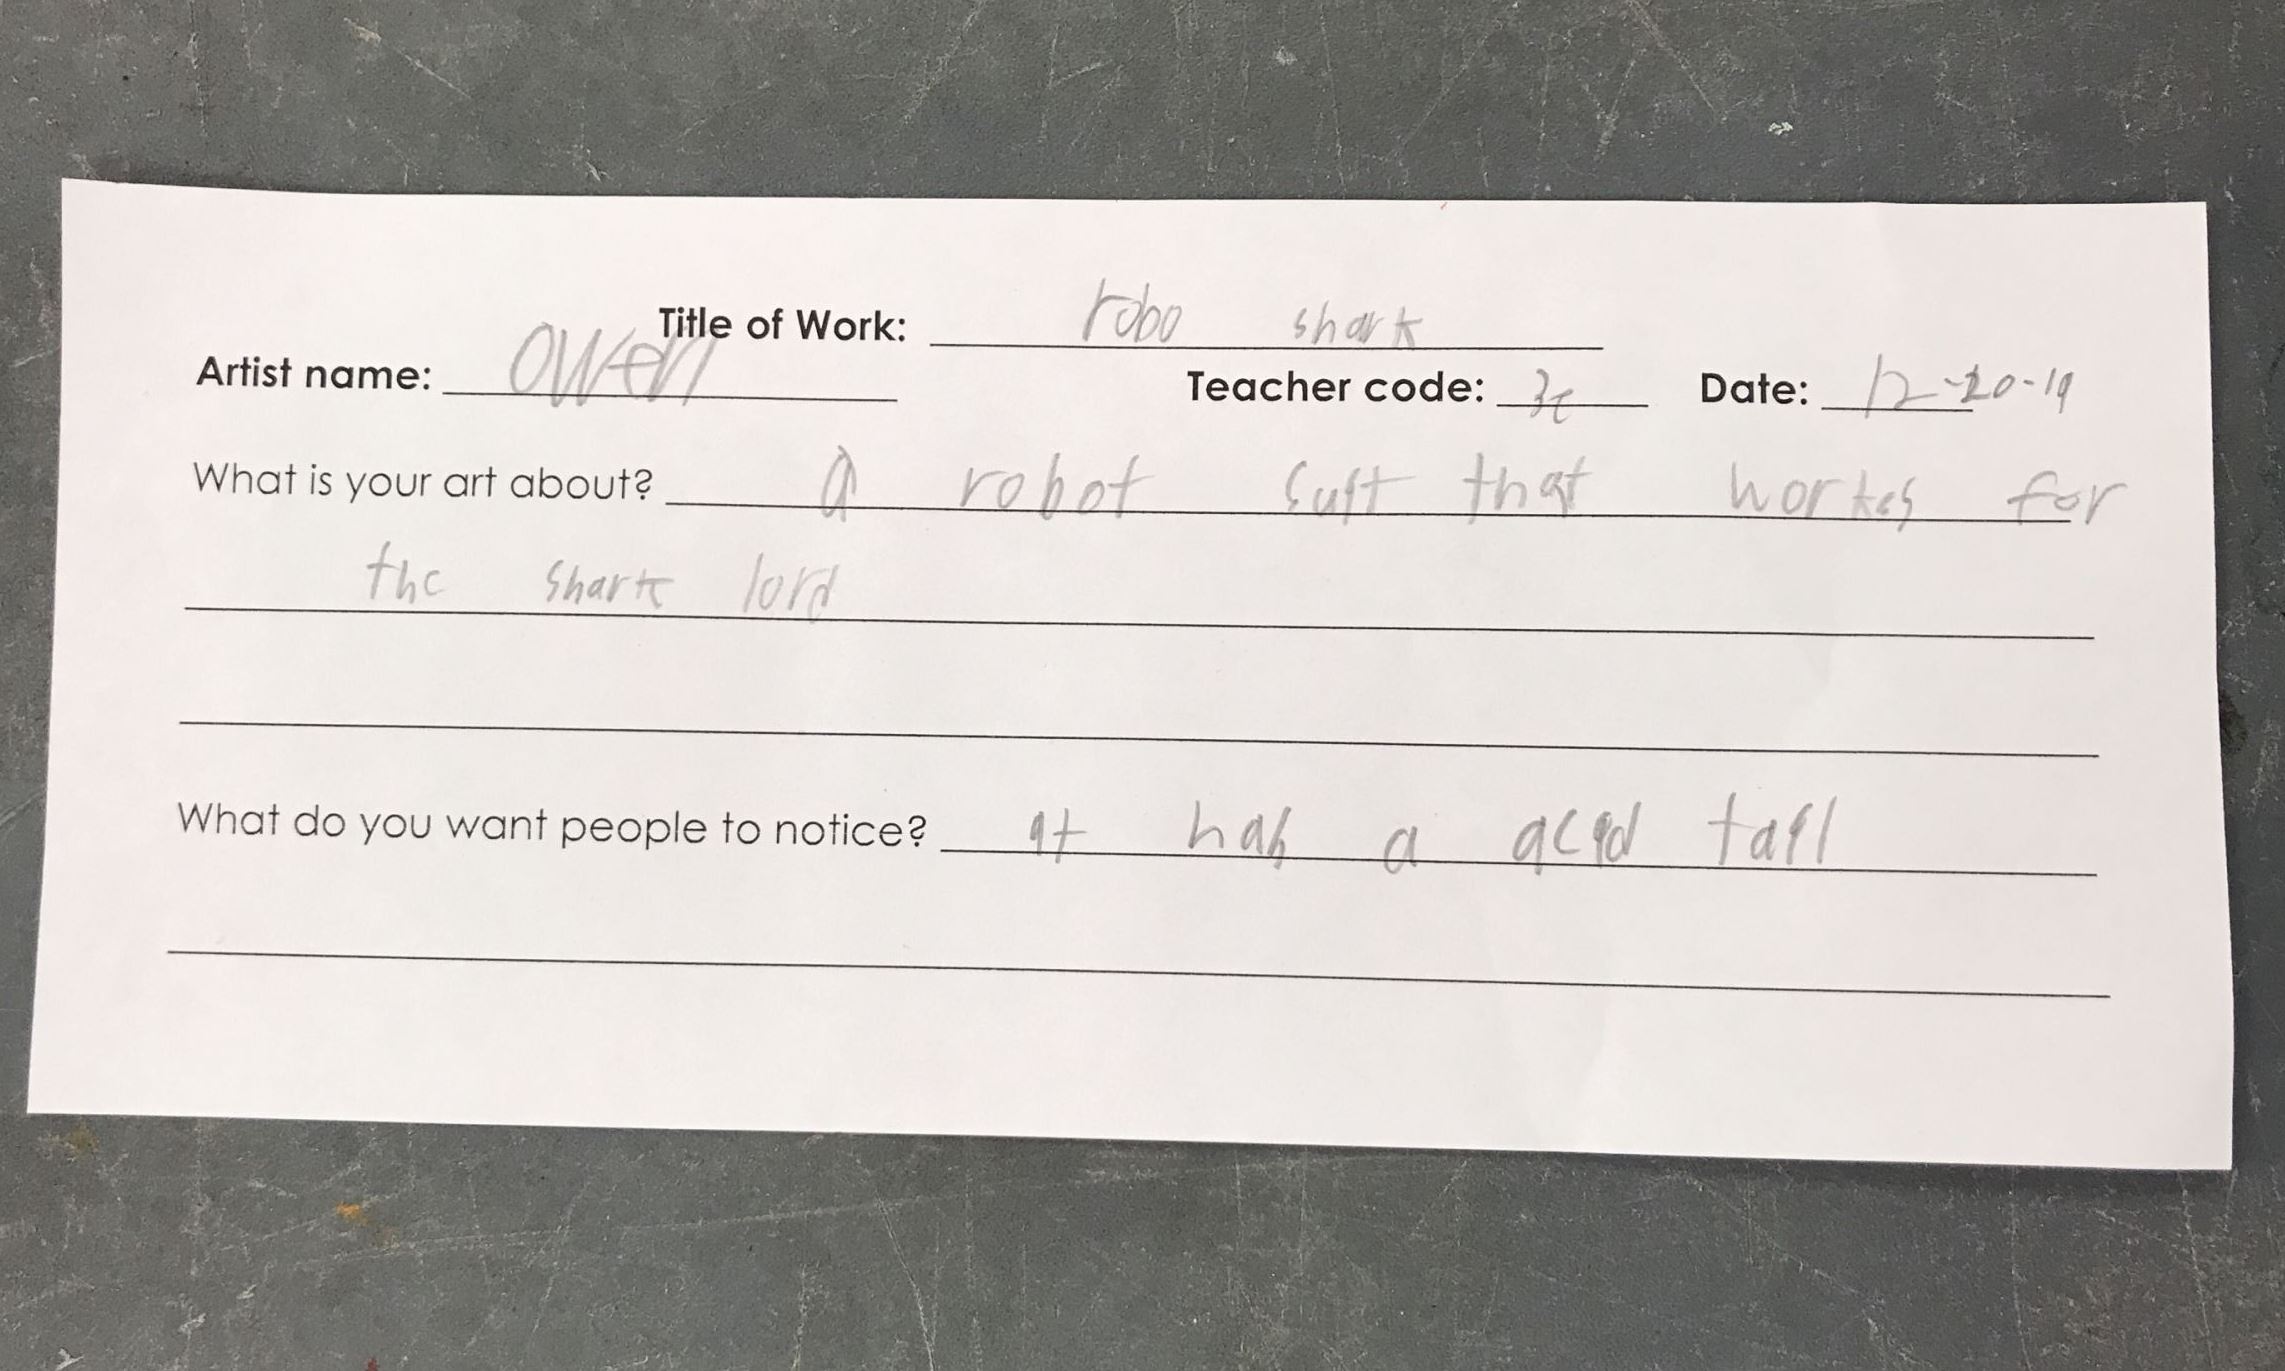 Title of Work: robo shark
Artist name: Owen Teacher code: 3c Date: 12-20-19
What is your art about? a robot suit that workes for
the shark lord
What do you want people to notice? it has a acid tail